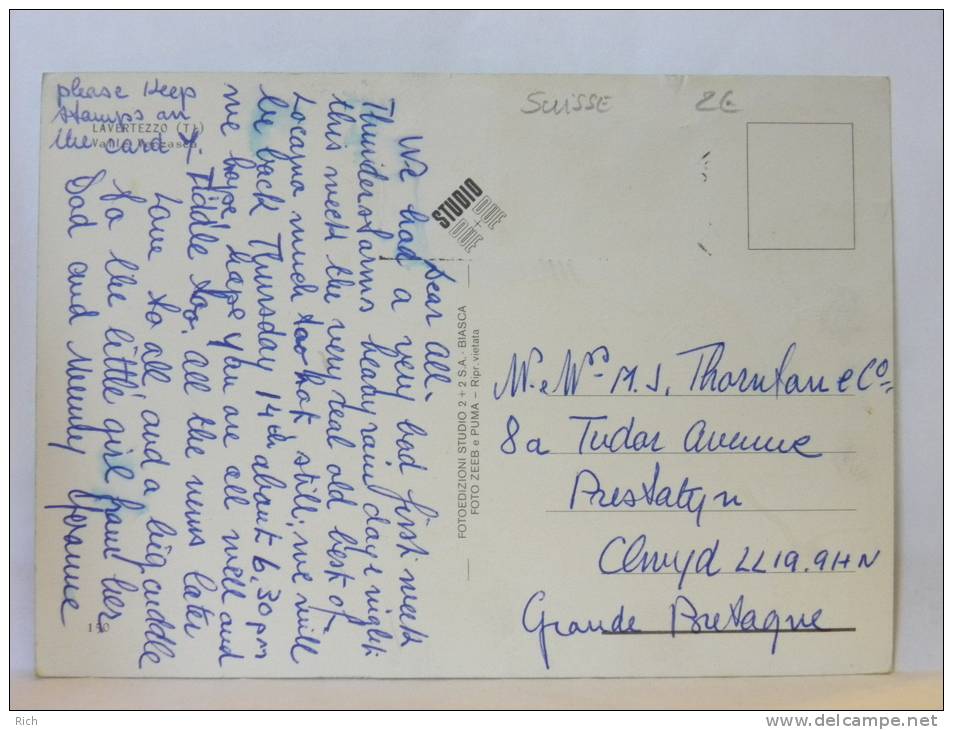 please keep
stamps on
the card Y.
LAVERTEZZO (TI)
Valle Verzasca
Dear all.
We had a very bad first week
Thunderstorms heavy rain day & night
this week the very deal old best of
Locagno much too hot, still, we will
be back Thursday 14th about 6.30 pm
we hope, hope you are all well and
Tiddle too. all the news later
Love to all, and a big cuddle
to the little girl from her
Dad and Mummy
150
STUDIO
DUE
+
DUE
FOTOEDIZIONI STUDIO 2 + 2 S.A. - BIASCA
FOTO ZEEB e PUMA - Ripr. vietata
SUISSE 2€
M. e Mrs M. J. Thornton e Co=
8a Tudor Avenue
Prestatyn
Clwyd LL19.9HN
Grande Bretagne
Rich
www.delcampe.net